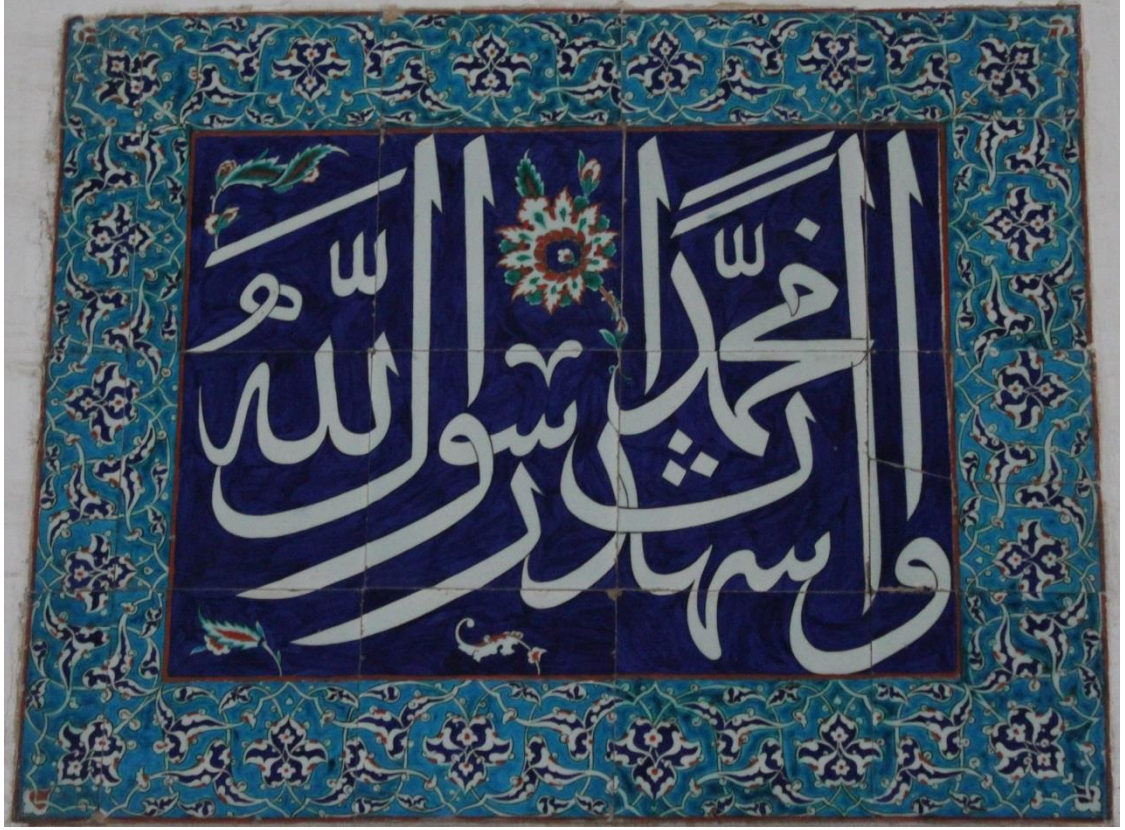 واشهد ان محمّدا رسول اللّهُ